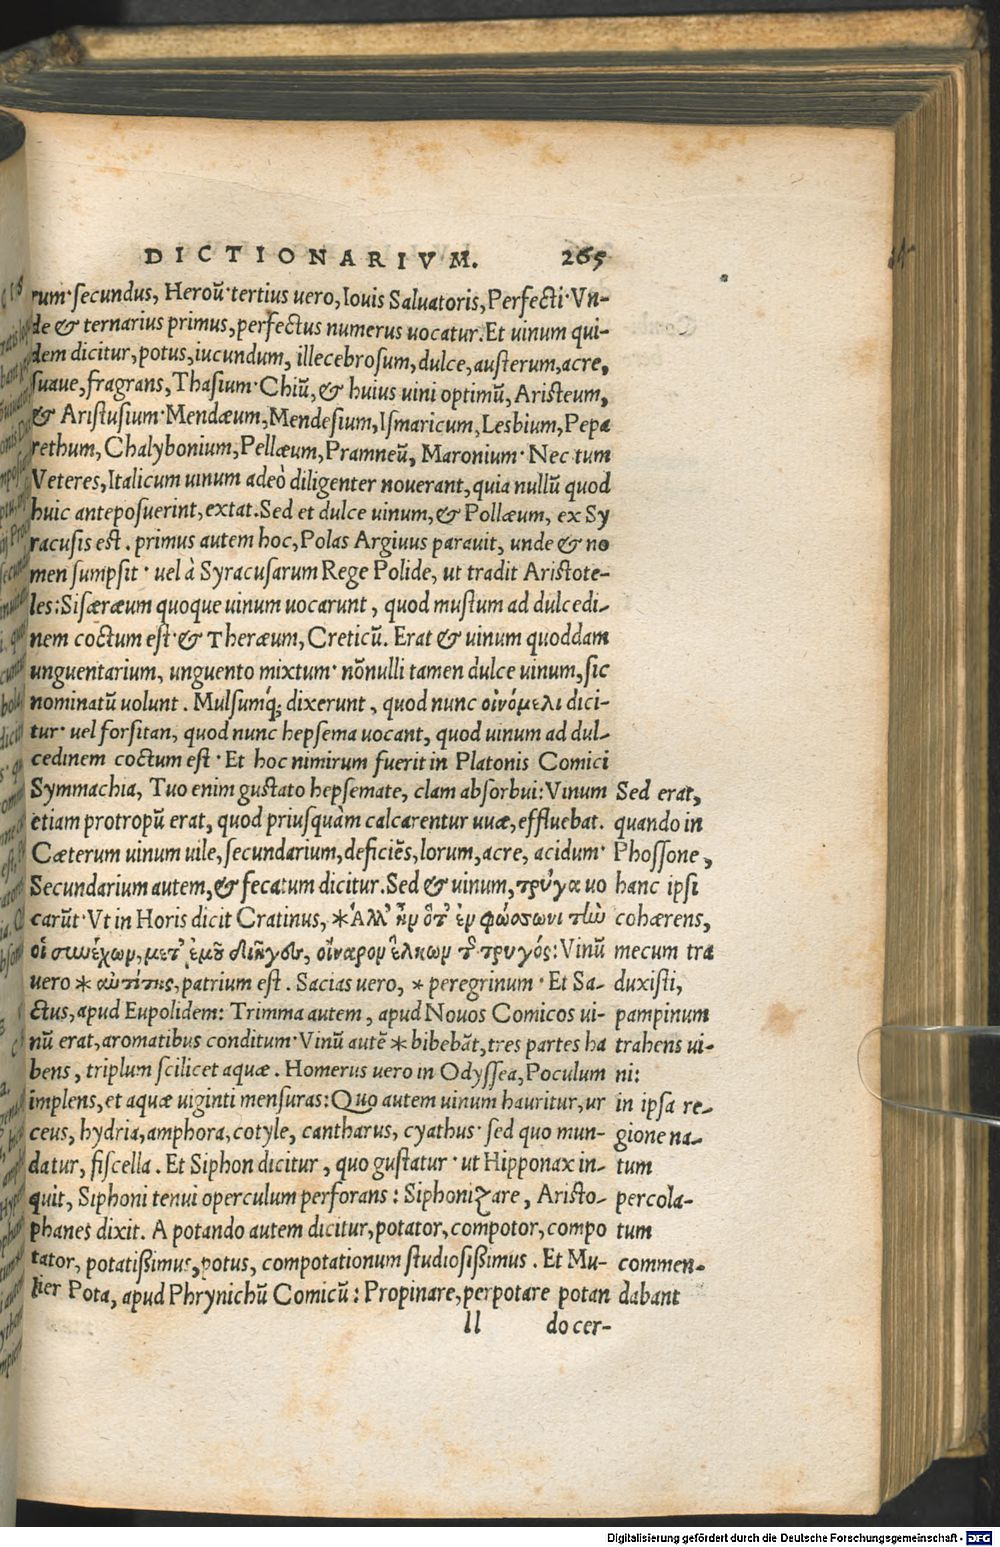 DICTIONARIVM. 265
rum· secundus, Heroũ· tertius uero, Iouis Saluatoris, Perfecti· Vn-
de & ternarius primus, perfectus numerus uocatur. Et uinum qui-
dem dicitur, potus, iucundum, illecebrosum, dulce, austerum, acre,
suaue, fragrans, Thasium· Chiũ, & huius uini optimũ, Aristeum,
& Aristusium· Mendæum, Mendesium, Ismaricum, Lesbium, Pepa
rethum, Chalybonium, Pellæum, Pramneũ, Maronium· Nec tum
Veteres, Italicum uinum adeò diligenter nouerant, quia nullũ quod
huic anteposuerint, extat. Sed et dulce uinum, & Pollæum, ex Sy
racusis est. primus autem hoc, Polas Argiuus parauit, unde & no
men sumpsit· uel à Syracusarum Rege Polide, ut tradit Aristote-
les: Sisæræum quoque uinum uocarunt, quod mustum ad dulcedi-
nem coctum est· & Theræum, Creticũ. Erat & uinum quoddam
unguentarium, unguento mixtum· nõnulli tamen dulce uinum, sic
nominatũ uolunt. Mulsumq́; dixerunt, quod nunc οἰνόμελι dici-
tur· uel forsitan, quod nunc hepsema uocant, quod uinum ad dul-
cedinem coctum est· Et hoc nimirum fuerit in Platonis Comici
Symmachia, Tuo enim gustato hepsemate, clam absorbui: Vinum
etiam protropũ erat, quod priusquàm calcarentur uuæ, effluebat.
Cæterum uinum uile, secundarium, deficiẽs, lorum, acre, acidum·
Secundarium autem, & fecatum dicitur. Sed & uinum, τρύγα uo
carũt· Vt in Horis dicit Cratinus, * Ἀλλ᾽ ἦν ὅτ᾽ ἐν φώσωνι τὼ
οἱ συνέχων, μετ᾽ ἐμοῦ διῆγες, οἴναρον ἕλκων τ τρυγός: Vinũ
uero * αὐτίτης, patrium est. Sacias uero, * peregrinum· Et Sa-
ctus, apud Eupolidem: Trimma autem, apud Nouos Comicos ui-
nũ erat, aromatibus conditum· Vinũ autẽ * bibebãt, tres partes ha
bens, triplum scilicet aquæ. Homerus uero in Odyssea, Poculum
implens, et aquæ uiginti mensuras: Quo autem uinum hauritur, ur
ceus, hydria, amphora, cotyle, cantharus, cyathus· sed quo mun-
datur, fiscella. Et Siphon dicitur, quo gustatur· ut Hipponax in-
quit, Siphoni tenui operculum perforans: Siphonizare, Aristo-
phanes dixit. A potando autem dicitur, potator, compotor, compo
tator, potatißimus, potus, compotationum studiosißimus. Et Mu-
lier Pota, apud Phrynichũ Comicũ: Propinare, perpotare potan
ll do cer-
Sed erat,
quando in
Phossone,
hanc ipsi
cohærens,
mecum tra
duxisti,
pampinum
trahens ui-
ni:
in ipsa re-
gione na-
tum
percola-
tum
commen-
dabant
Digitalisierung gefördert durch die Deutsche Forschungsgemeinschaft - DFG